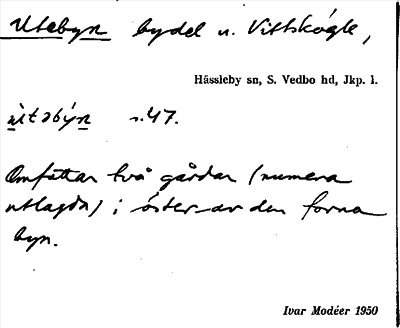 Utebyn bydel u. Vittskögle,
Hässleby sn, S. Vedbo hd, Jkp. l.
ùtəbýn s. 47.
Omfattar två gårdar (numera
utlagda) i öster av den forna
byn.
Ivar Modéer 1950